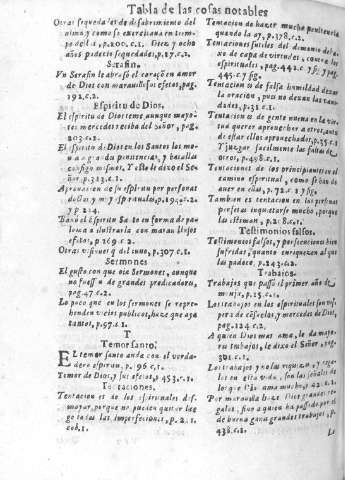 Tabla de las cosas notables
Otras sequedades de desabrimento del
alma, y como se exercitaua en tiem-
po della, p.200. c.1. Diez y ocho
años padecio sequedades, p.87. c.2.
Serafin.
Vn Serafin le abrasò el coraçon en amor
de Dios con marauillosos efetos, pag.
192. c.2.
Espiritu de Dios.
El espiritu de Dios teme, aunque mayo-
res mercedes reciba del Señor, pag.
203. c.1.
El espiritu de Dios en los Santos los mo-
uia a grandes penitencias, y batallas
consigo mismos. Y esto le dixo el Se-
ñor, p.313. c.1.
Aprouacion de su espiritu por personas
doctas y muy espirituales, p.
y 214.
Baxò el Espiritu Santo en forma de pa-
loma a ilustrarla con marauillosos
efetos, p.169. c.2
Otras visiones del mismo, p.307. c.1.
Sermones
El gusto con que oìa Sermones, aunque
no fuessen de grandes predicadores,
pag. 47. c.2.
Lo poco que en los sermones se repre-
henden vicios publicos, haze que aya
tantos, p.97. c.1.
T
Temor santo.
EL temor santo anda con el verda-
dero espiritu, p. 96. c.1.
Temor de Dios, y sus efetos, p.453. c.1.
Tentaciones.
Tentacion es de los espirituales des-
mayar, porque no pueden quitar lue-
go todas las imperfeciones, p.2.
col.1.
Tentacion de hazer mucha penitencia
quando la ay, p.378. c.2.
Tentaciones sutiles del demonio deba-
xo de capa de virtudes, contra los
espirituales, pag. 442. c. y pag.
445. c.
Tentacion es de falsa humildad dexar
la oracion, pues no dexan las vani-
dades, p.31. c.1.
Tentacion es de gente nueua en la vir-
tud querer aprouechar a otros, antes
de estar ellos aprouechados, p.35. c.1
Y juzgar facilmente las faltas de
otros, p.408. c.1.
Tentaciones de los principiantes en el
camino espiritual, como se han de
auer en ellas, p.72. c.1 y sig.
Tambien es tentacion en las personas
perfetas inquietarse mucho, porque
los estiman, p.218. c.1.
Testimonios falsos.
Testimonios falsos, y persecucion bien
sufridas, quanto enriquezen al que
las padece, p.243. c.2.
Trabajos.
Trabajos que passò el primer año de
monja, p.15. c.1.
Los trabajos en los espirituales son vis-
pera de consuelos, y mercedes de Dios,
pag.124. c.2.
A quien Dios mas ama, le da mayo-
res trabajos, le dixo el Señor, pag.
301. c.1.
Los trabajos, y no las riquezas, y rega-
los en esta vida, son las señales de
los que Dios ama mucho, 42. c.1.
Por marauilla haze Dios grandes re-
galos, sino a quien ha passado por el
de buena gana grandes trabajos, p.
438. c.2.